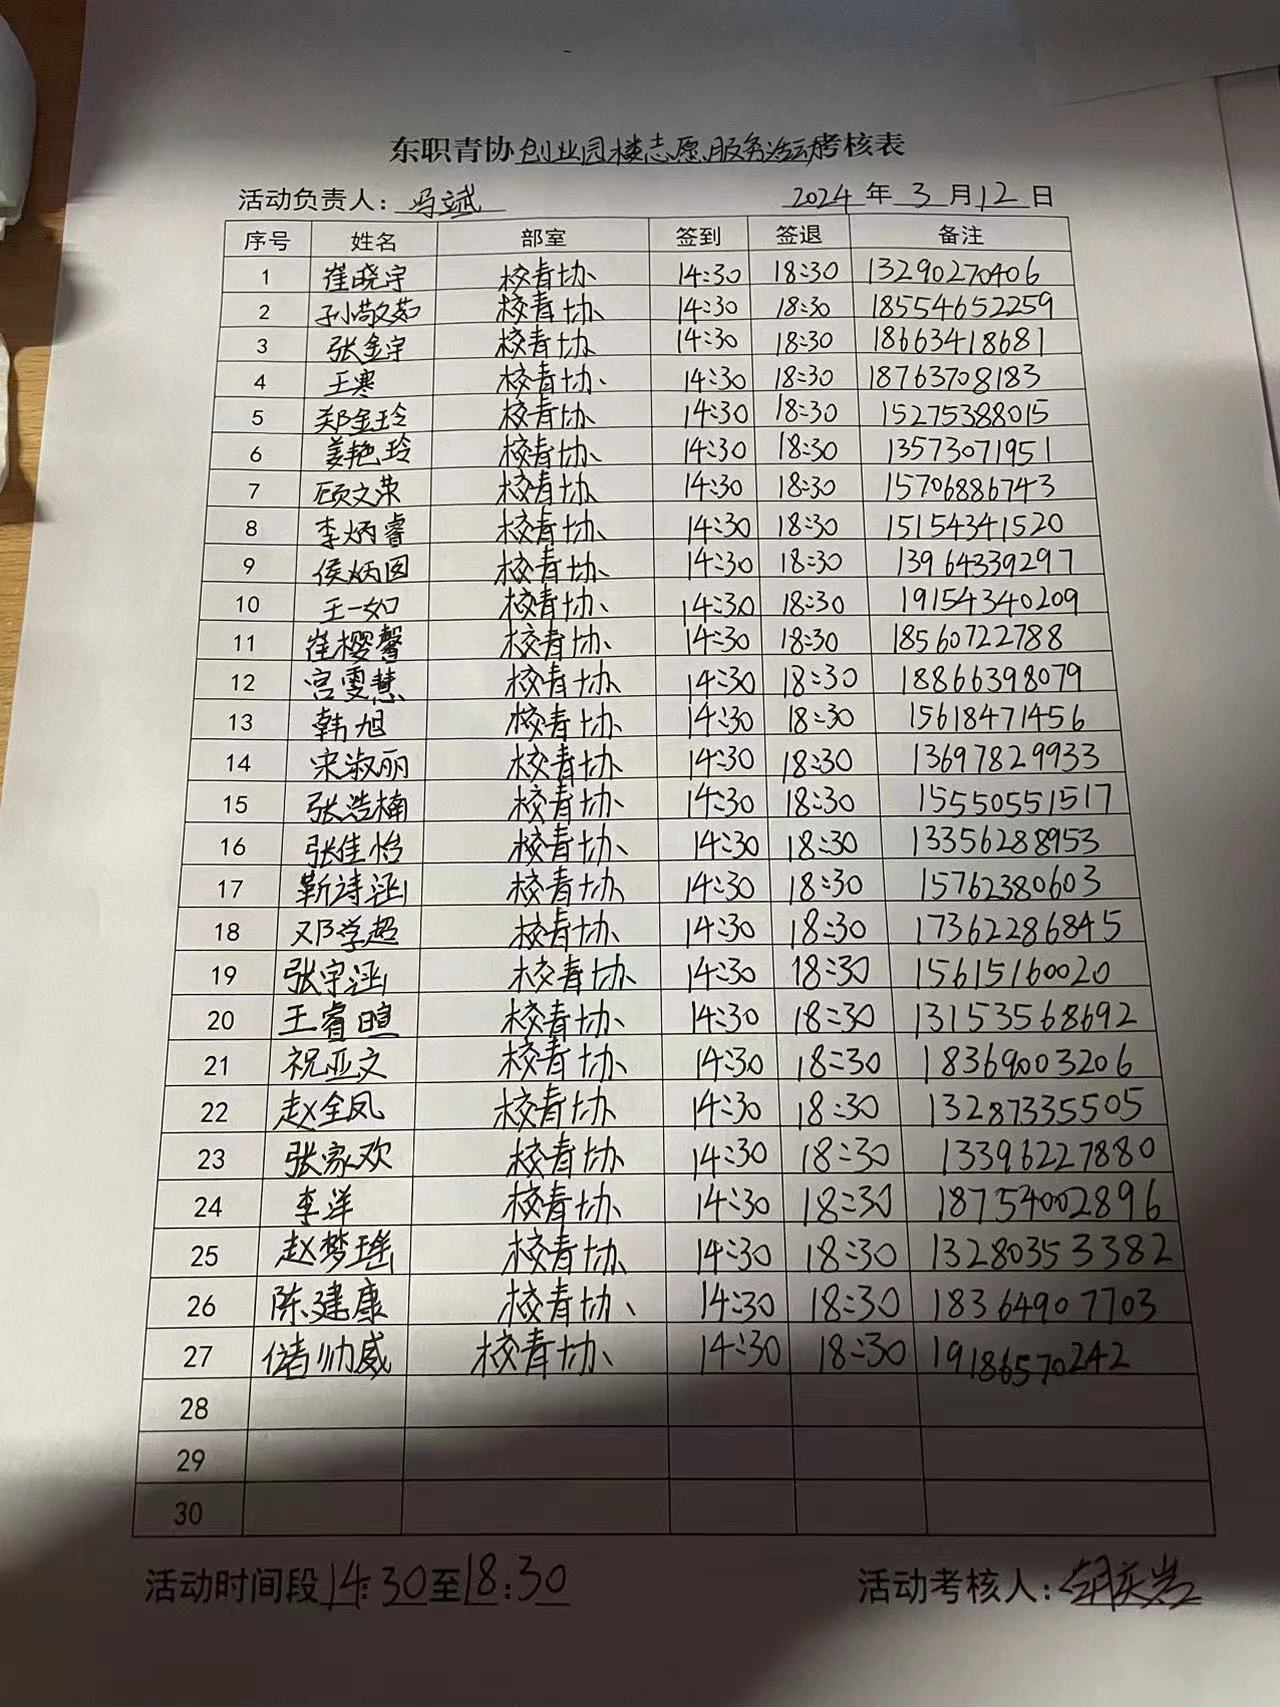 东职青协创业园楼志愿服务活动考核表
活动负责人：冯斌 2024年3月12日
序号 姓名 部室 签到 签退 备注
1 崔晓宇 校青协 14:30 18:30 13290270406
2 孙敬茹 校青协 14:30 18:30 18554652259
3 张金宇 校青协 14:30 18:30 18663418681
4 王寒 校青协 14:30 18:30 18763708183
5 郑金玲 校青协 14:30 18:30 15275388015
6 姜艳玲 校青协 14:30 18:30 13573071951
7 顾文荣 校青协 14:30 18:30 15706886743
8 李炳睿 校青协 14:30 18:30 15154341520
9 侯炳囡 校青协 14:30 18:30 13964339297
10 王一如 校青协 14:30 18:30 19154340209
11 崔樱馨 校青协 14:30 18:30 18560722788
12 宫雯慧 校青协 14:30 18:30 18866398079
13 韩旭 校青协 14:30 18:30 15618471456
14 宋淑丽 校青协 14:30 18:30 13697829933
15 张浩楠 校青协 14:30 18:30 15550551517
16 张佳怡 校青协 14:30 18:30 13356288953
17 靳诗涵 校青协 14:30 18:30 15762380603
18 邓学超 校青协 14:30 18:30 17362286845
19 张宇涵 校青协 14:30 18:30 15615160020
20 王睿暄 校青协 14:30 18:30 13153568692
21 祝亚文 校青协 14:30 18:30 18369003206
22 赵全凤 校青协 14:30 18:30 13287335505
23 张家欢 校青协 14:30 18:30 13396227880
24 李洋 校青协 14:30 18:30 18754002896
25 赵梦瑶 校青协 14:30 18:30 13280353382
26 陈建康 校青协 14:30 18:30 18364907703
27 储帅威 校青协 14:30 18:30 19186570242
28
29
30
活动时间段14:30至18:30 活动考核人：